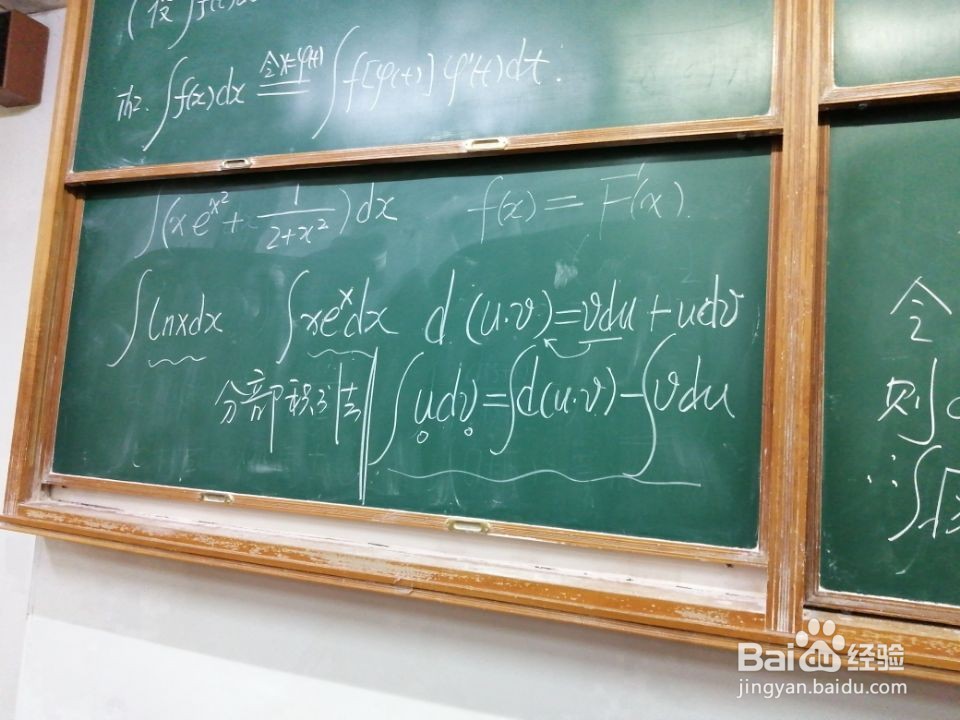 (设 ∫f(x)d
∫f(x)dx 令x=φ(t) ∫f[φ(t)]φ'(t)dt.
∫(xe^{x^2}+\frac{1}{2+x^2})dx f(x)=F'(x).
∫lnxdx ∫xe^xdx d(u·v)=vdu+udv
分部积分法 ∫udv=∫d(u·v)-∫vdu
令
则
∴∫
Baidu经验
jingyan.baidu.com